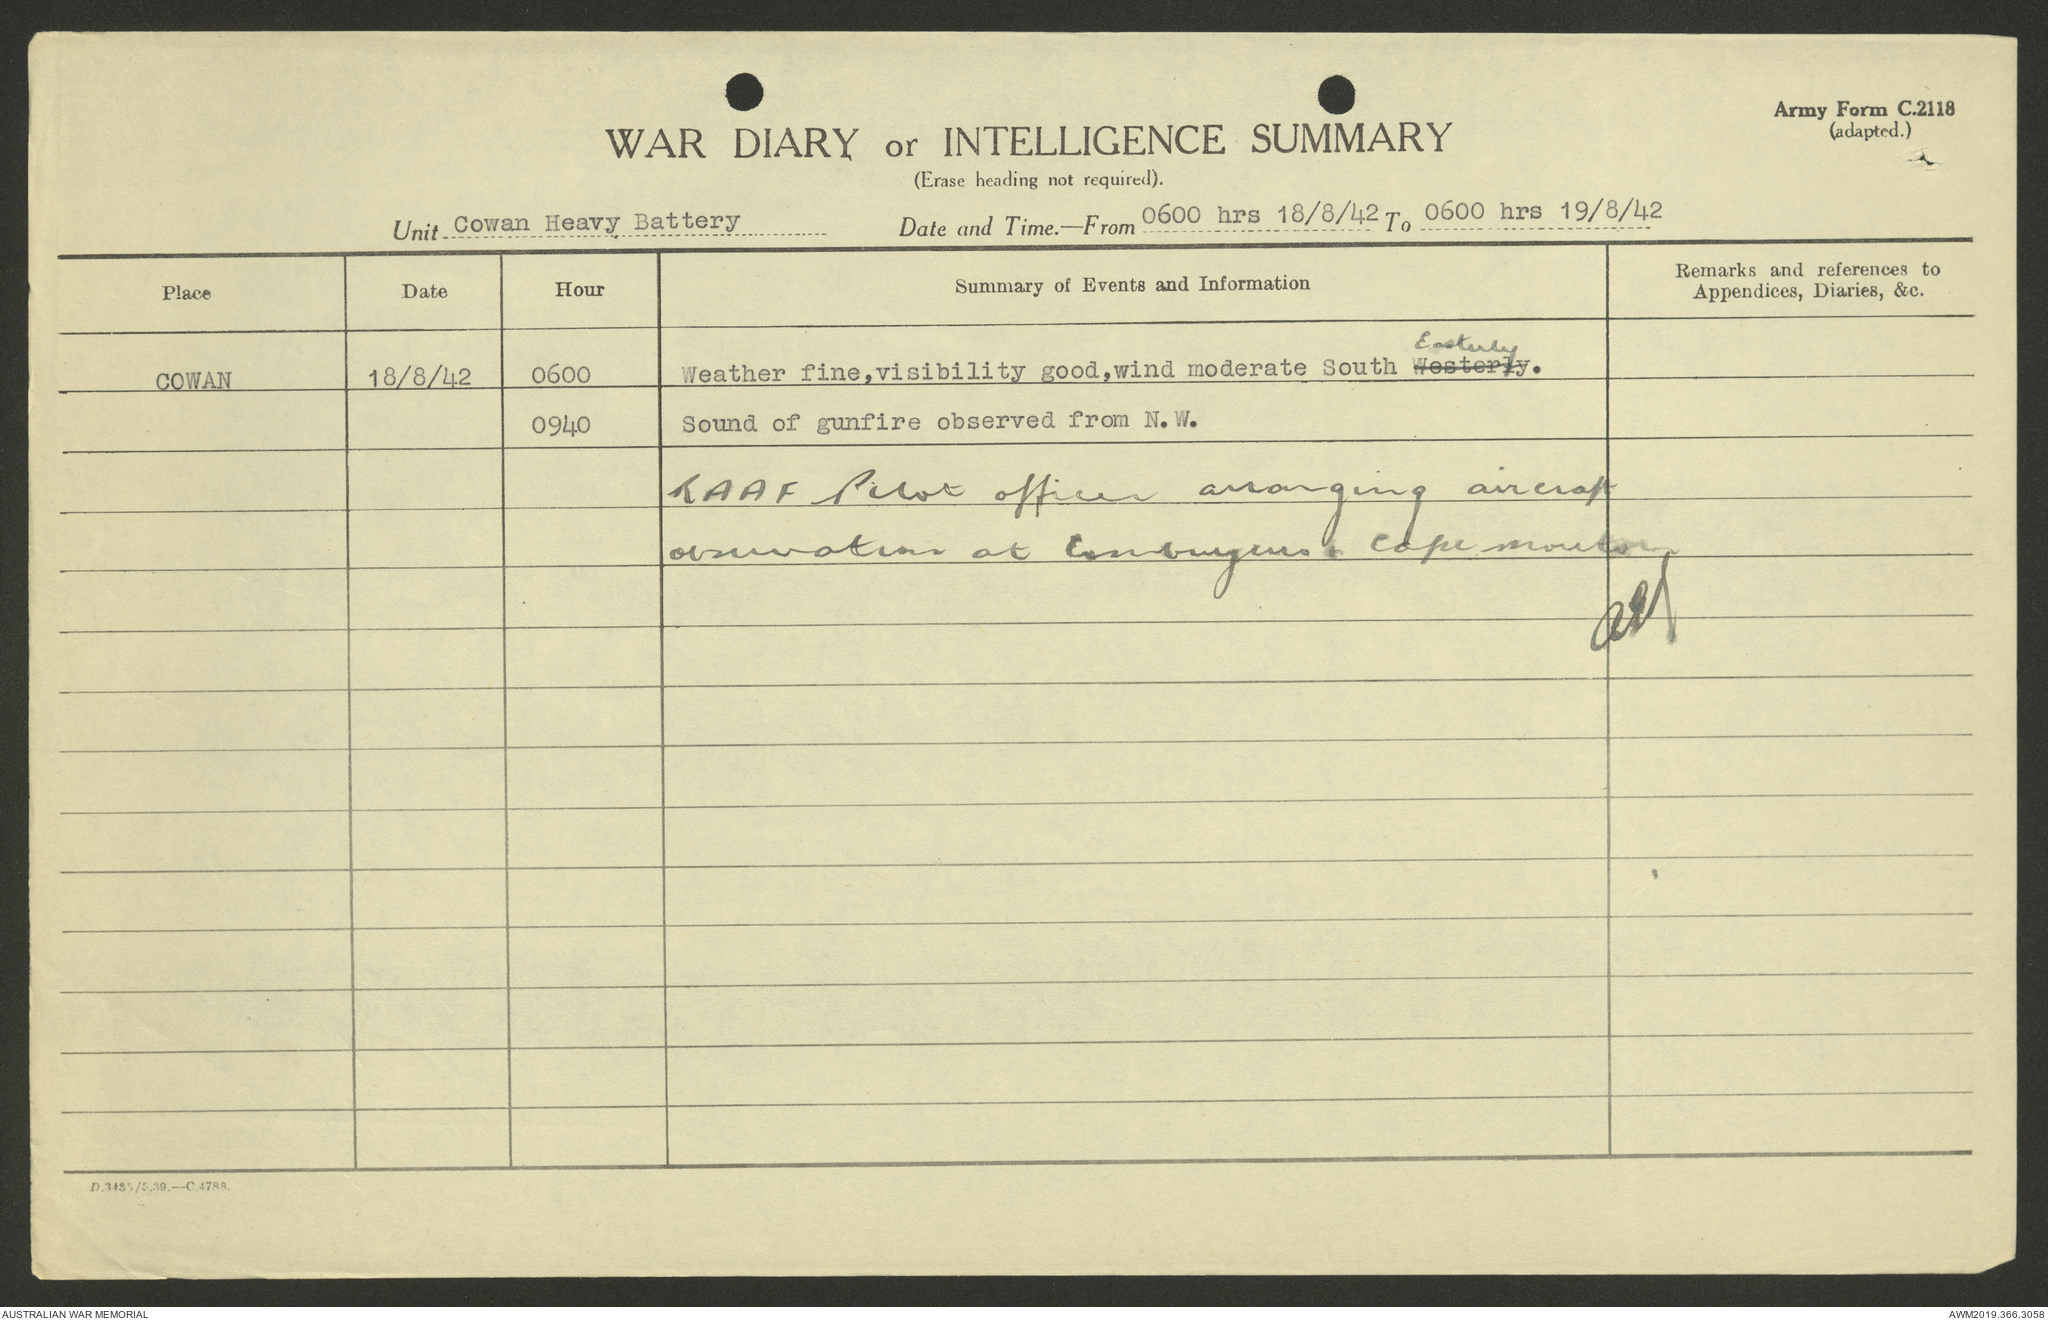 Army Form C.2118
(adapted.)
WAR DIARY or INTELLIGENCE SUMMARY
(Erase heading not required).
Unit Cowan Heavy Battery Date and Time.—From 0600 hrs 18/8/42 To 0600 hrs 19/8/42
Place Date Hour Summary of Events and Information Remarks and references to
Appendices, Diaries, &c.
Easterly
COWAN 18/8/42 0600 Weather fine,visibility good,wind moderate South Westerly.
0940 Sound of gunfire observed from N.W.
RAAF Pilot officer arranging aircraft
observation at Cowan Cape Moreton
D.3485/5.39.—C.4788.
AUSTRALIAN WAR MEMORIAL AWM2019.366.3058